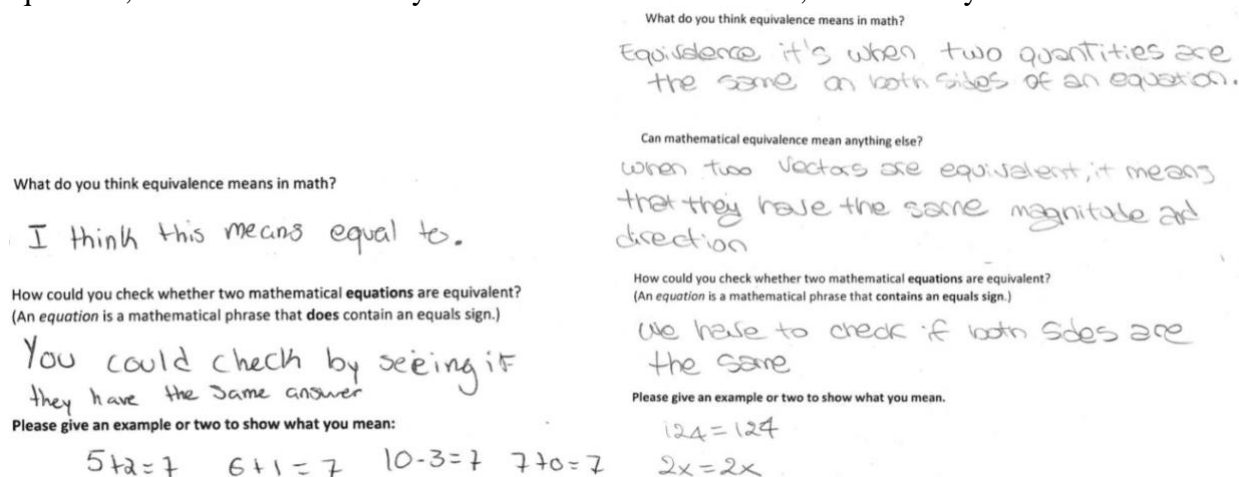 What do you think equivalence means in math?
I think this means equal to.
How could you check whether two mathematical equations are equivalent?
(An equation is a mathematical phrase that does contain an equals sign.)
You could check by seeing if
they have the same answer
Please give an example or two to show what you mean:
5+2=7 6+1=7 10-3=7 7+0=7
What do you think equivalence means in math?
Equivalence it's when two quantities are
the same on both sides of an equation.
Can mathematical equivalence mean anything else?
When two vectors are equivalent, it means
that they have the same magnitude and
direction
How could you check whether two mathematical equations are equivalent?
(An equation is a mathematical phrase that contains an equals sign.)
We have to check if both sides are
the same
Please give an example or two to show what you mean.
124=124
2x=2x